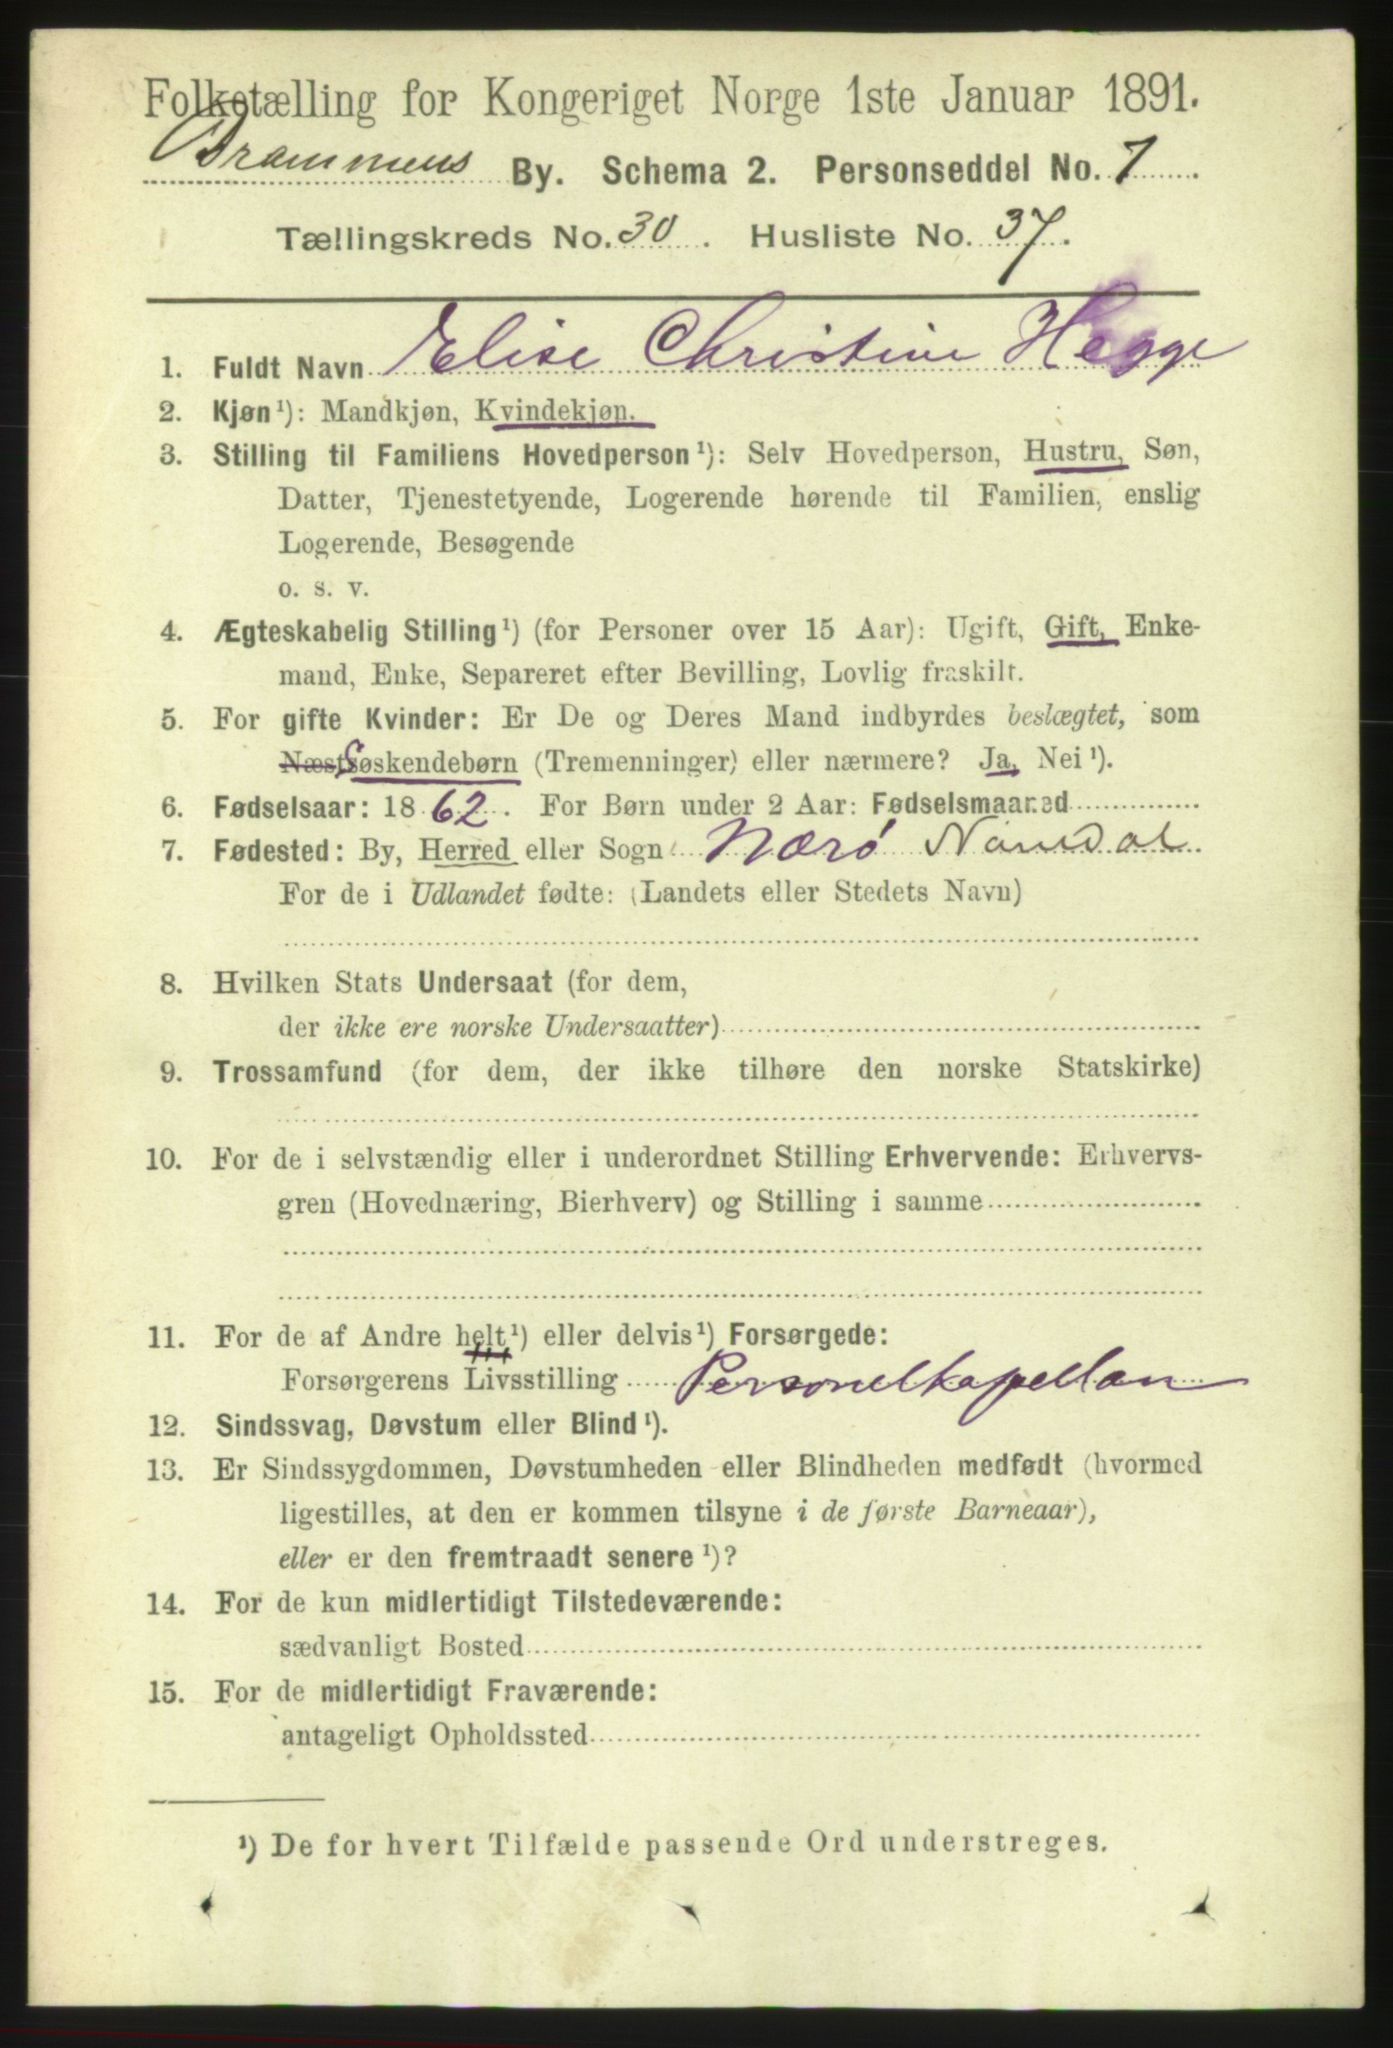 Folketælling for Kongeriget Norge 1ste Januar 1891.
Drammens By. Schema 2. Personseddel No. 7
Tællingskreds No. 30. Husliste No. 37.
1. Fuldt Navn Elise Christine Hegge
2. Kjøn¹): Mandkjøn, Kvindekjøn.
3. Stilling til Familiens Hovedperson¹): Selv Hovedperson, Hustru, Søn,
Datter, Tjenestetyende, Logerende hørende til Familien, enslig
Logerende, Besøgende
o. s. v.
4. Ægteskabelig Stilling¹) (for Personer over 15 Aar): Ugift, Gift, Enke-
mand, Enke, Separeret efter Bevilling, Lovlig fraskilt.
5. For gifte Kvinder: Er De og Deres Mand indbyrdes beslægtet, som
Næstsøskendebørn (Tremenninger) eller nærmere? Ja, Nei¹).
6. Fødselsaar: 1862. For Børn under 2 Aar: Fødselsmaaned
7. Fødested: By, Herred eller Sogn Nærø Namdal
For de i Udlandet fødte: (Landets eller Stedets Navn)
8. Hvilken Stats Undersaat (for dem,
der ikke ere norske Undersaatter)
9. Trossamfund (for dem, der ikke tilhøre den norske Statskirke)
10. For de i selvstændig eller i underordnet Stilling Erhvervende: Erhvervs-
gren (Hovednæring, Bierhverv) og Stilling i samme
11. For de af Andre helt¹) eller delvis¹) Forsørgede:
Forsørgerens Livsstilling Personelkapellan
12. Sindssvag, Døvstum eller Blind¹).
13. Er Sindssygdommen, Døvstumheden eller Blindheden medfødt (hvormed
ligestilles, at den er kommen tilsyne i de første Barneaar),
eller er den fremtraadt senere¹)?
14. For de kun midlertidigt Tilstedeværende:
sædvanligt Bosted
15. For de midlertidigt Fraværende:
antageligt Opholdssted
¹) De for hvert Tilfælde passende Ord understreges.